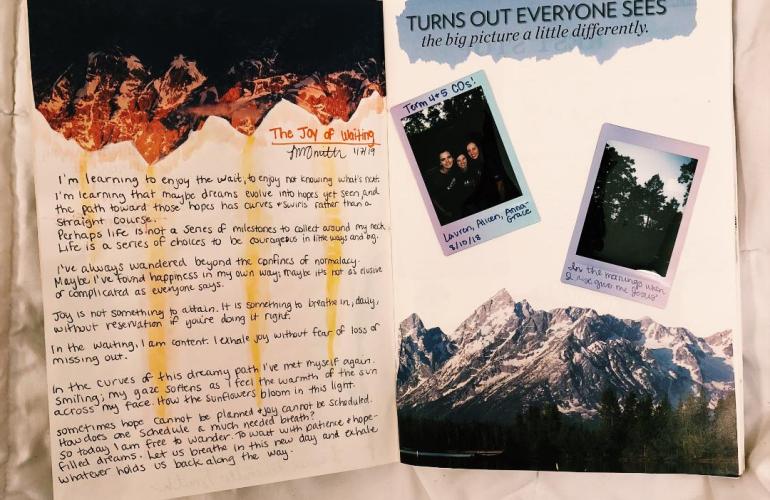 The Joy of Waiting
1/7/19
I'm learning to enjoy the wait, to enjoy not knowing what's next.
I'm learning that maybe dreams evolve into hopes yet seen, and
the path toward those hopes has curves & swirls rather than a
straight course.
Perhaps life is not a series of milestones to collect around my neck.
Life is a series of choices to be courageous in little ways and big.
I've always wandered beyond the confines of normalacy.
Maybe I've found happiness in my own way; maybe it's not as elusive
or complicated as everyone says.
Joy is not something to attain. It is something to breathe in, daily,
without reservation if you're doing it right.
In the waiting, I am content. I exhale joy without fear of loss or
missing out.
In the curves of this dreamy path I've met myself again.
Smiling; my gaze softens as I feel the warmth of the sun
across my face. How the sunflowers bloom in this light.
sometimes hope cannot be planned & joy cannot be scheduled.
How does one schedule a much needed breath?
So today I am free to wander. To wait with patience & hope-
filled dreams. Let us breathe in this new day and exhale
whatever holds us back along the way.
TURNS OUT EVERYONE SEES
the big picture a little differently.
Term 4+5 COs!
Lauren, Aileen, Anna-
Grace
8/10/18
In the mornings when
I rise give me Jesus